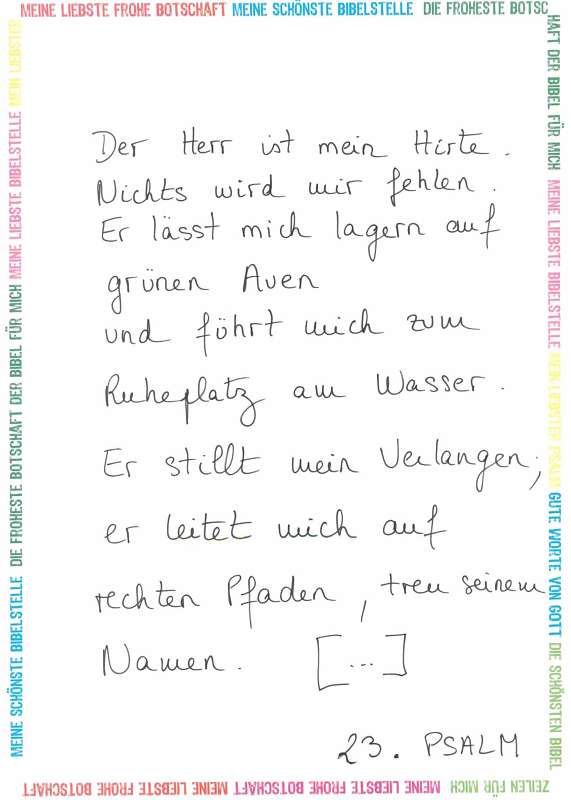 MEINE LIEBSTE FROHE BOTSCHAFT MEINE SCHÖNSTE BIBELSTELLE DIE FROHESTE BOTSC
HAFT DER BIBEL FÜR MICH MEINE LIEBSTE BIBELSTELLE MEIN LIEBSTER PSALM GUTE WORTE VON GOTT DIE SCHÖNSTEN BIBEL
ZEILEN FÜR MICH MEINE LIEBSTE BIBELSTELLE MEINE LIEBSTE FROHE BOTSCHAFT
MEINE SCHÖNSTE BIBELSTELLE DIE FROHESTE BOTSCHAFT DER BIBEL FÜR MICH MEINE LIEBSTE BIBELSTELLE MEIN LIEBSTER
Der Herr ist mein Hirte.
Nichts wird mir fehlen.
Er lässt mich lagern auf
grünen Auen
und führt mich zum
Ruheplatz am Wasser.
Er stillt mein Verlangen;
er leitet mich auf
rechten Pfaden, treu seinem
Namen. [...]
23. PSALM